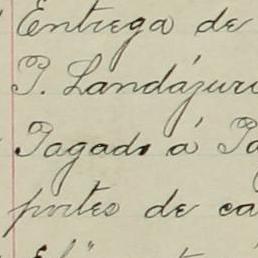 Entrega de
P. Landájuri
Pagado á Pa
portes de ca